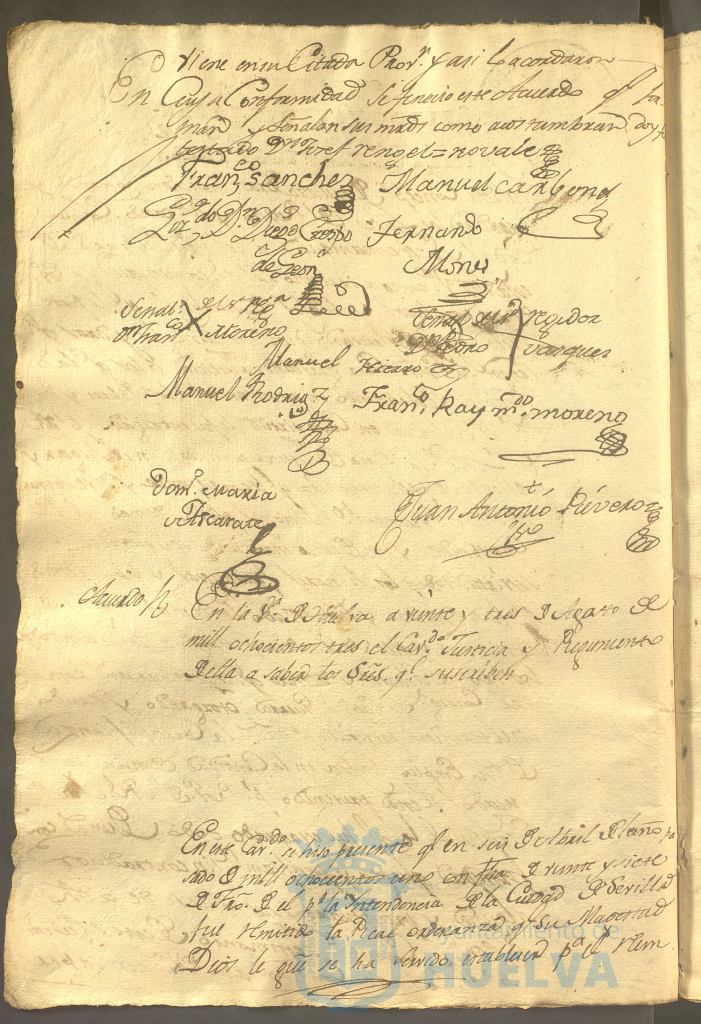 viene en su Citada Prov.n y asi lo acordaron
En Cuya Conformidad se fenecio este Acuerdo q.e fir
man y señalan sus mrds como acostumbran doy fe
testado D.n Josef rengel = no vale
Fran.co sanchez Manuel carbonel
Liz.do D.n Diego Crespo Fernando
de Leon Mones
Señal de el S.r
D.n Fran.co Moreno
Señal del S.r regidor
D.n Pedro Vazquez
Manuel Hierro
Manuel Rodrig.z Fran.co Raym.do moreno
Dom.o Maria
Azcarate
Juan Antonio Rivero
Acuerdo
En la V.a de Huelva a veinte y tres de Agosto de
mill ochocientos tres el Cav.do Justicia y Regimiento
de ella a saber los Sres. q.e suscriben
En este Cav.do se hiso presente q.e en seis de Abril del año pa
sado de mill ochocientos uno con fha de veinte y siete
de Fro. de el p.r la Intendencia de la Ciudad de Sevilla
fue remitida la Real ordenanza q.e su Magestad
Dios le gue se ha servido establecer p.a el reem
Ayuntamiento de
HUELVA